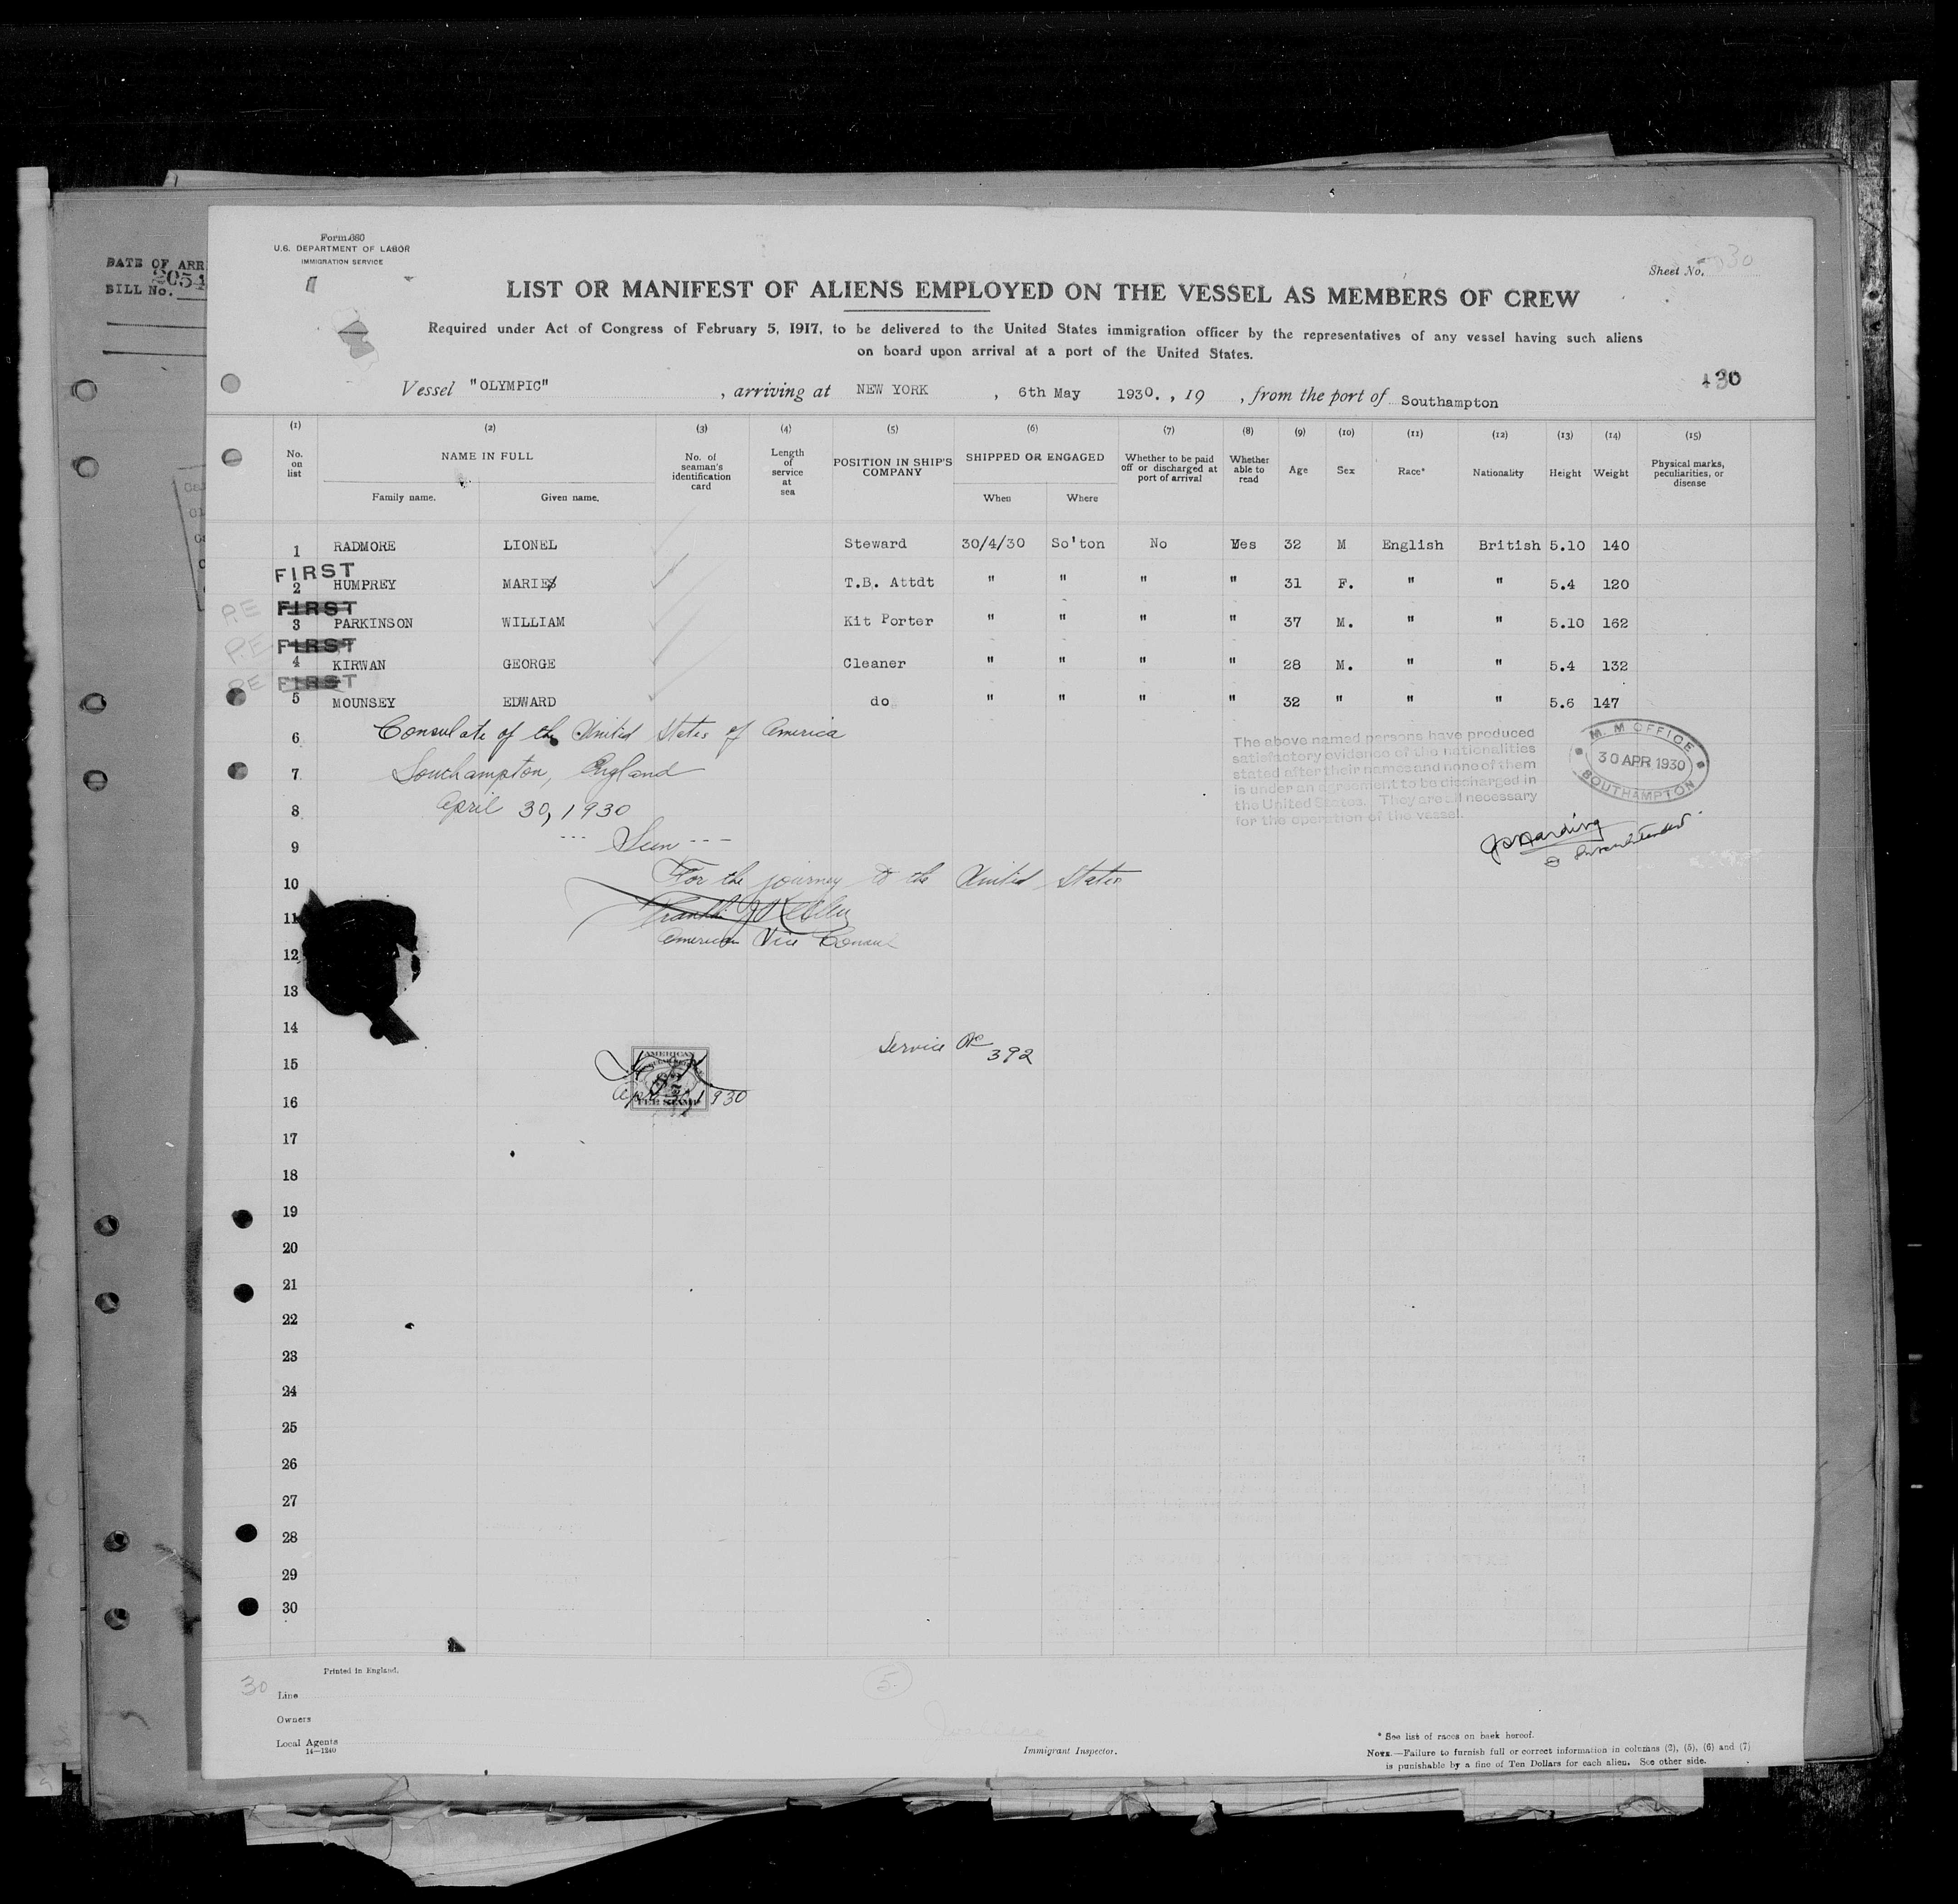 DATE OF ARR
2054
BILL No.
Form 680
U.S. DEPARTMENT OF LABOR
IMMIGRATION SERVICE
Sheet No. 30
LIST OR MANIFEST OF ALIENS EMPLOYED ON THE VESSEL AS MEMBERS OF CREW
Required under Act of Congress of February 5, 1917, to be delivered to the United States immigration officer by the representatives of any vessel having such aliens
on board upon arrival at a port of the United States.
130
Vessel "OLYMPIC" , arriving at NEW YORK , 6th May 1930. , 19 , from the port of Southampton
(1) (2) (3) (4) (5) (6) (7) (8) (9) (10) (11) (12) (13) (14) (15)
No. on list NAME IN FULL No. of seaman's identification card Length of service at sea POSITION IN SHIP'S COMPANY SHIPPED OR ENGAGED Whether to be paid off or discharged at port of arrival Whether able to read Age Sex Race* Nationality Height Weight Physical marks, peculiarities, or disease
Family name. Given name. When Where
1 RADMORE LIONEL Steward 30/4/30 So'ton No Yes 32 M English British 5.10 140
FIRST
2 HUMPREY MARIE T.B. Attdt " " " " 31 F. " " 5.4 120
P.E FIRST
3 PARKINSON WILLIAM Kit Porter " " " " 37 M. " " 5.10 162
P.E FIRST
4 KIRWAN GEORGE Cleaner " " " " 28 M. " " 5.4 132
P.E FIRST
5 MOUNSEY EDWARD do " " " " 32 " " " 5.6 147
6 Consulate of the United States of America
7 Southampton, England
8 April 30, 1930
9 --- Seen ---
10 For the journey to the United States
11
12 American Vice Consul
The above named persons have produced
satisfactory evidance of the nationalities
stated after their names and none of them
is under an agreement to be discharged in
the United States. They are all necessary
for the operation of the vessel.
M. M OFFICE
30 APR 1930
SOUTHAMPTON
Harding
13
14
Service No 392
15
AMERICAN
FEE STAMP
Apr 30, 1930
16
17
18
19
20
21
22
23
24
25
26
27
28
29
30
30
Printed in England.
5
Line
Owners
Local Agents
14—1240
Immigrant Inspector.
* See list of races on back hereof.
NOTE.—Failure to furnish full or correct information in columns (2), (5), (6) and (7)
is punishable by a fine of Ten Dollars for each alien. See other side.